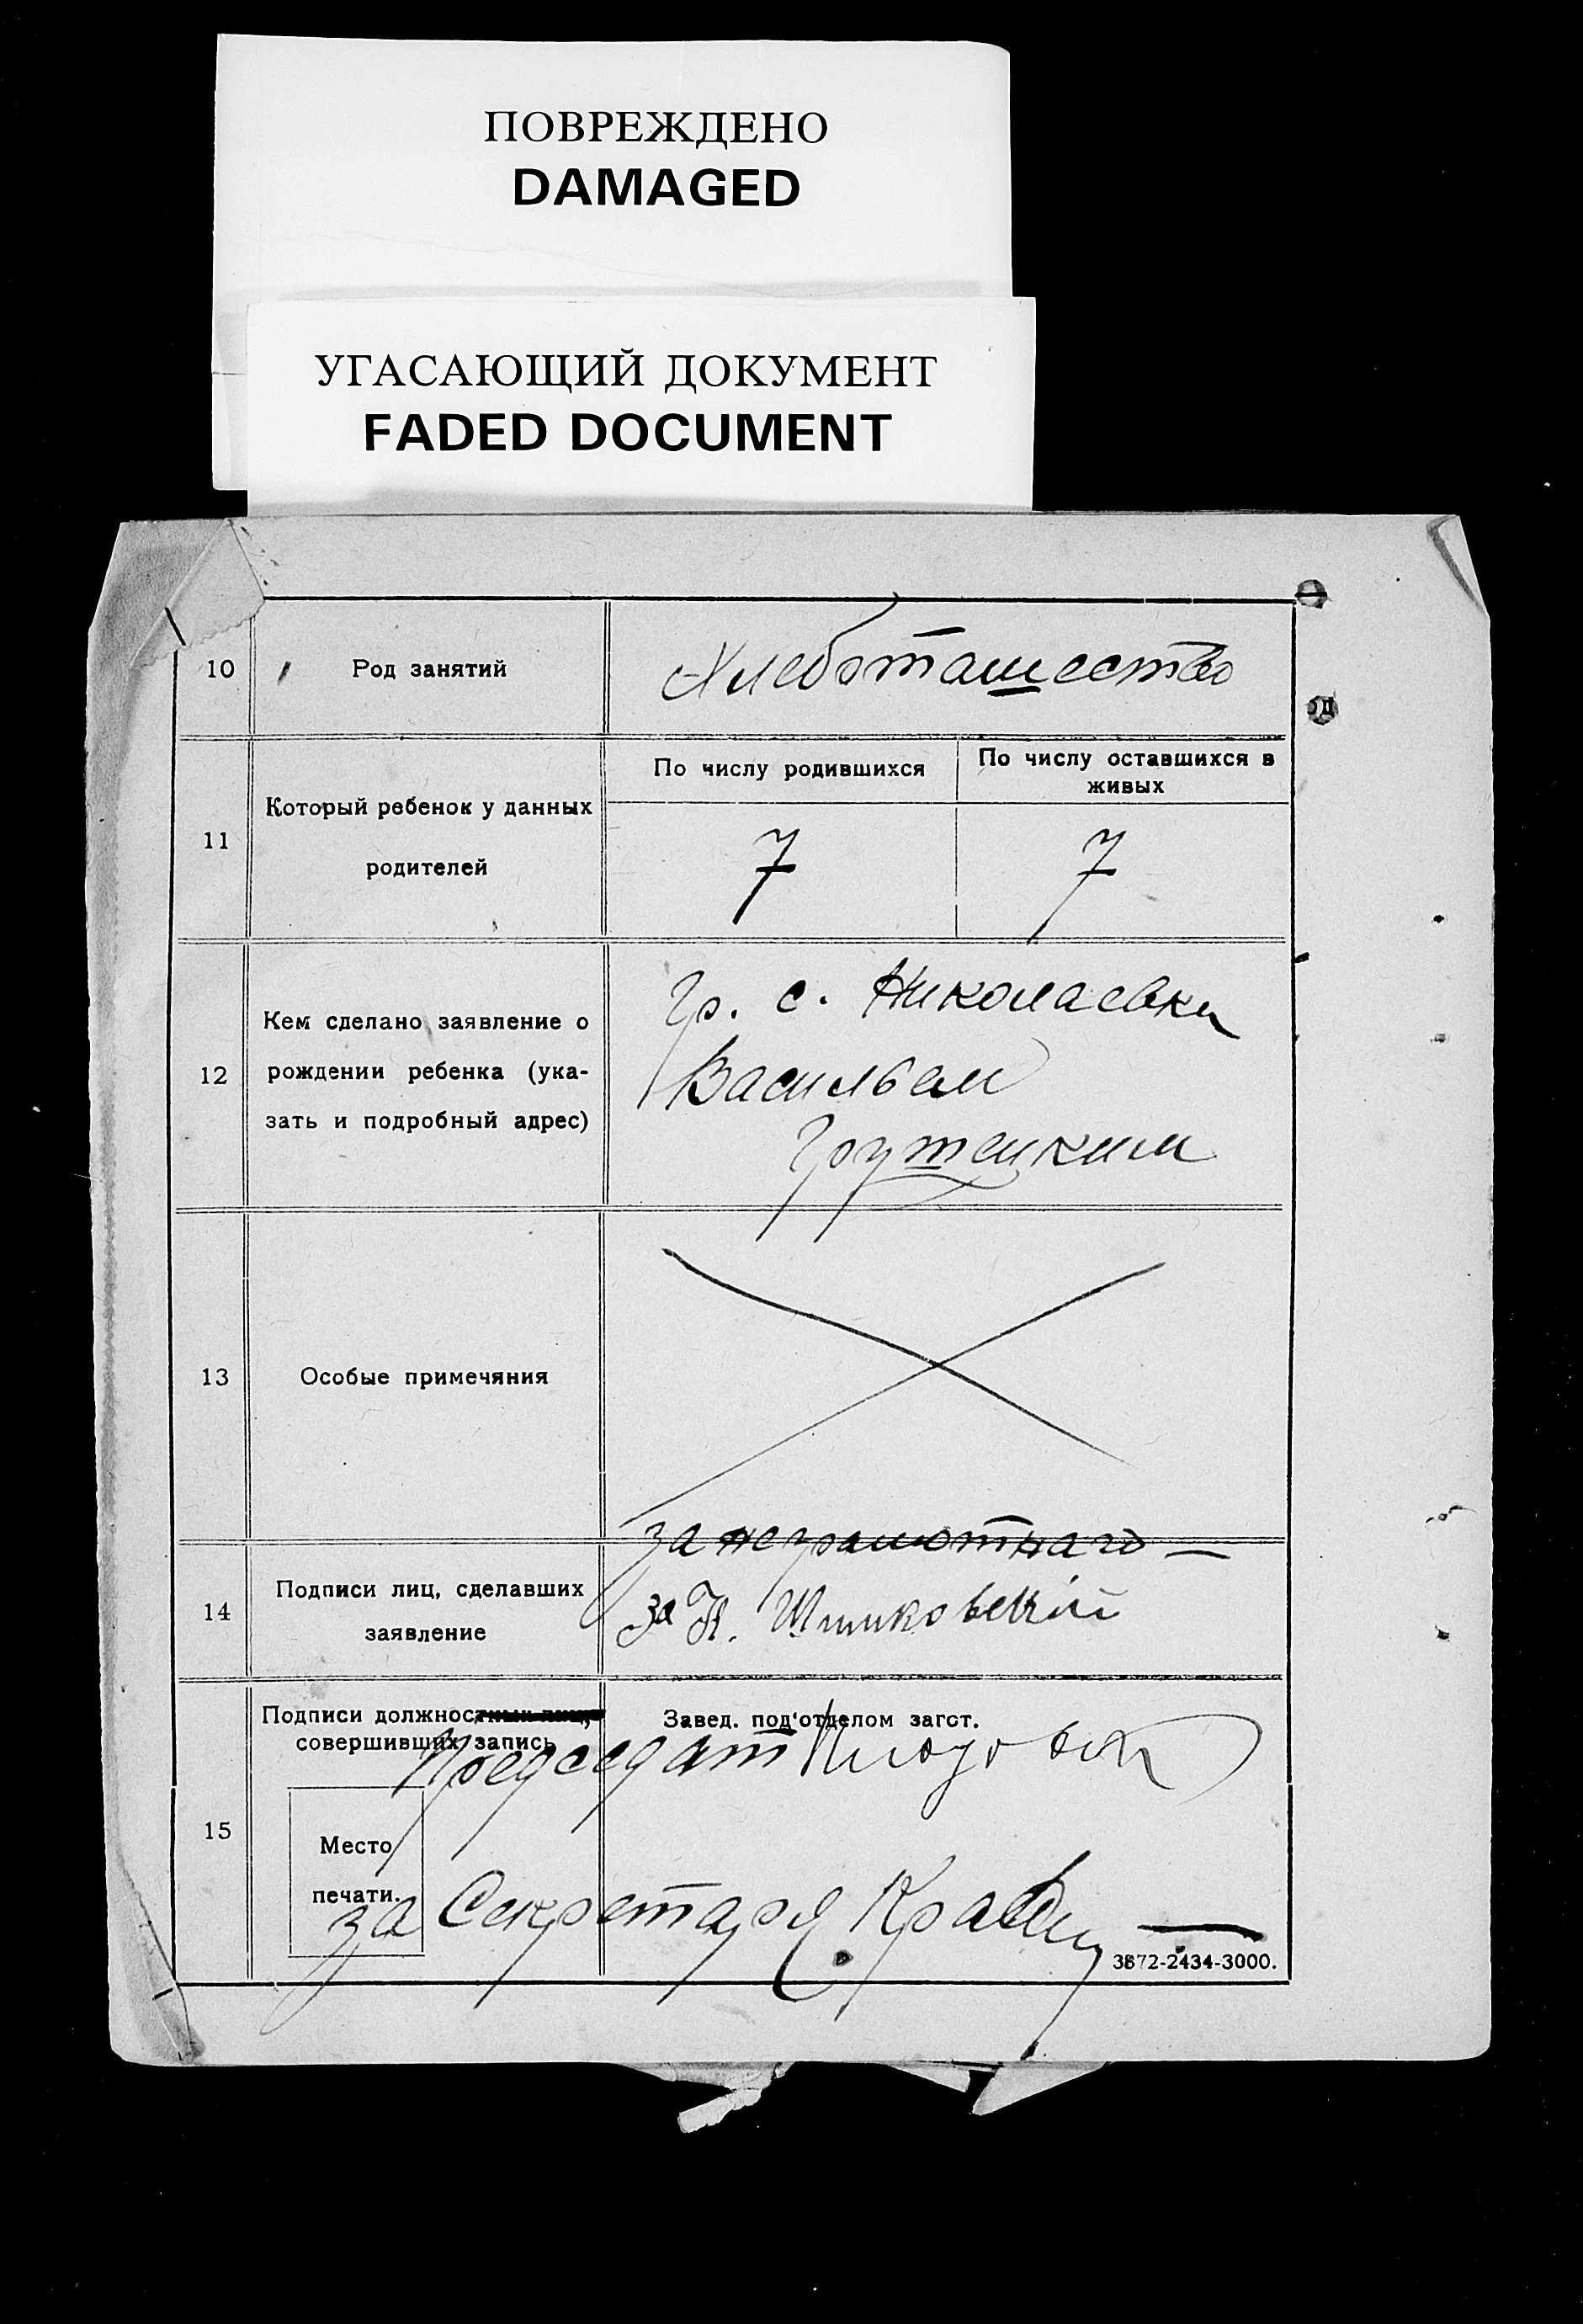 ПОВРЕЖДЕНО
DAMAGED
УГАСАЮЩИЙ ДОКУМЕНТ
FADED DOCUMENT
10
Род занятий
Хлебопашество
11
Который ребенок у данных
родителей
По числу родившихся
По числу оставшихся в
живых
7
7
12
Кем сделано заявление о
рождении ребенка (ука-
зать и подробный адрес)
Гр. с. Николаевки
Васильем
13
Особые примечяния
14
Подписи лиц, сделавших
заявление
за неграмотнаго —
за
15
Подписи должностных лиц,
совершивших запись
Завед. под'отделом загст.
Председат
Место
печати.
за Секретаря
3872-2434-3000.